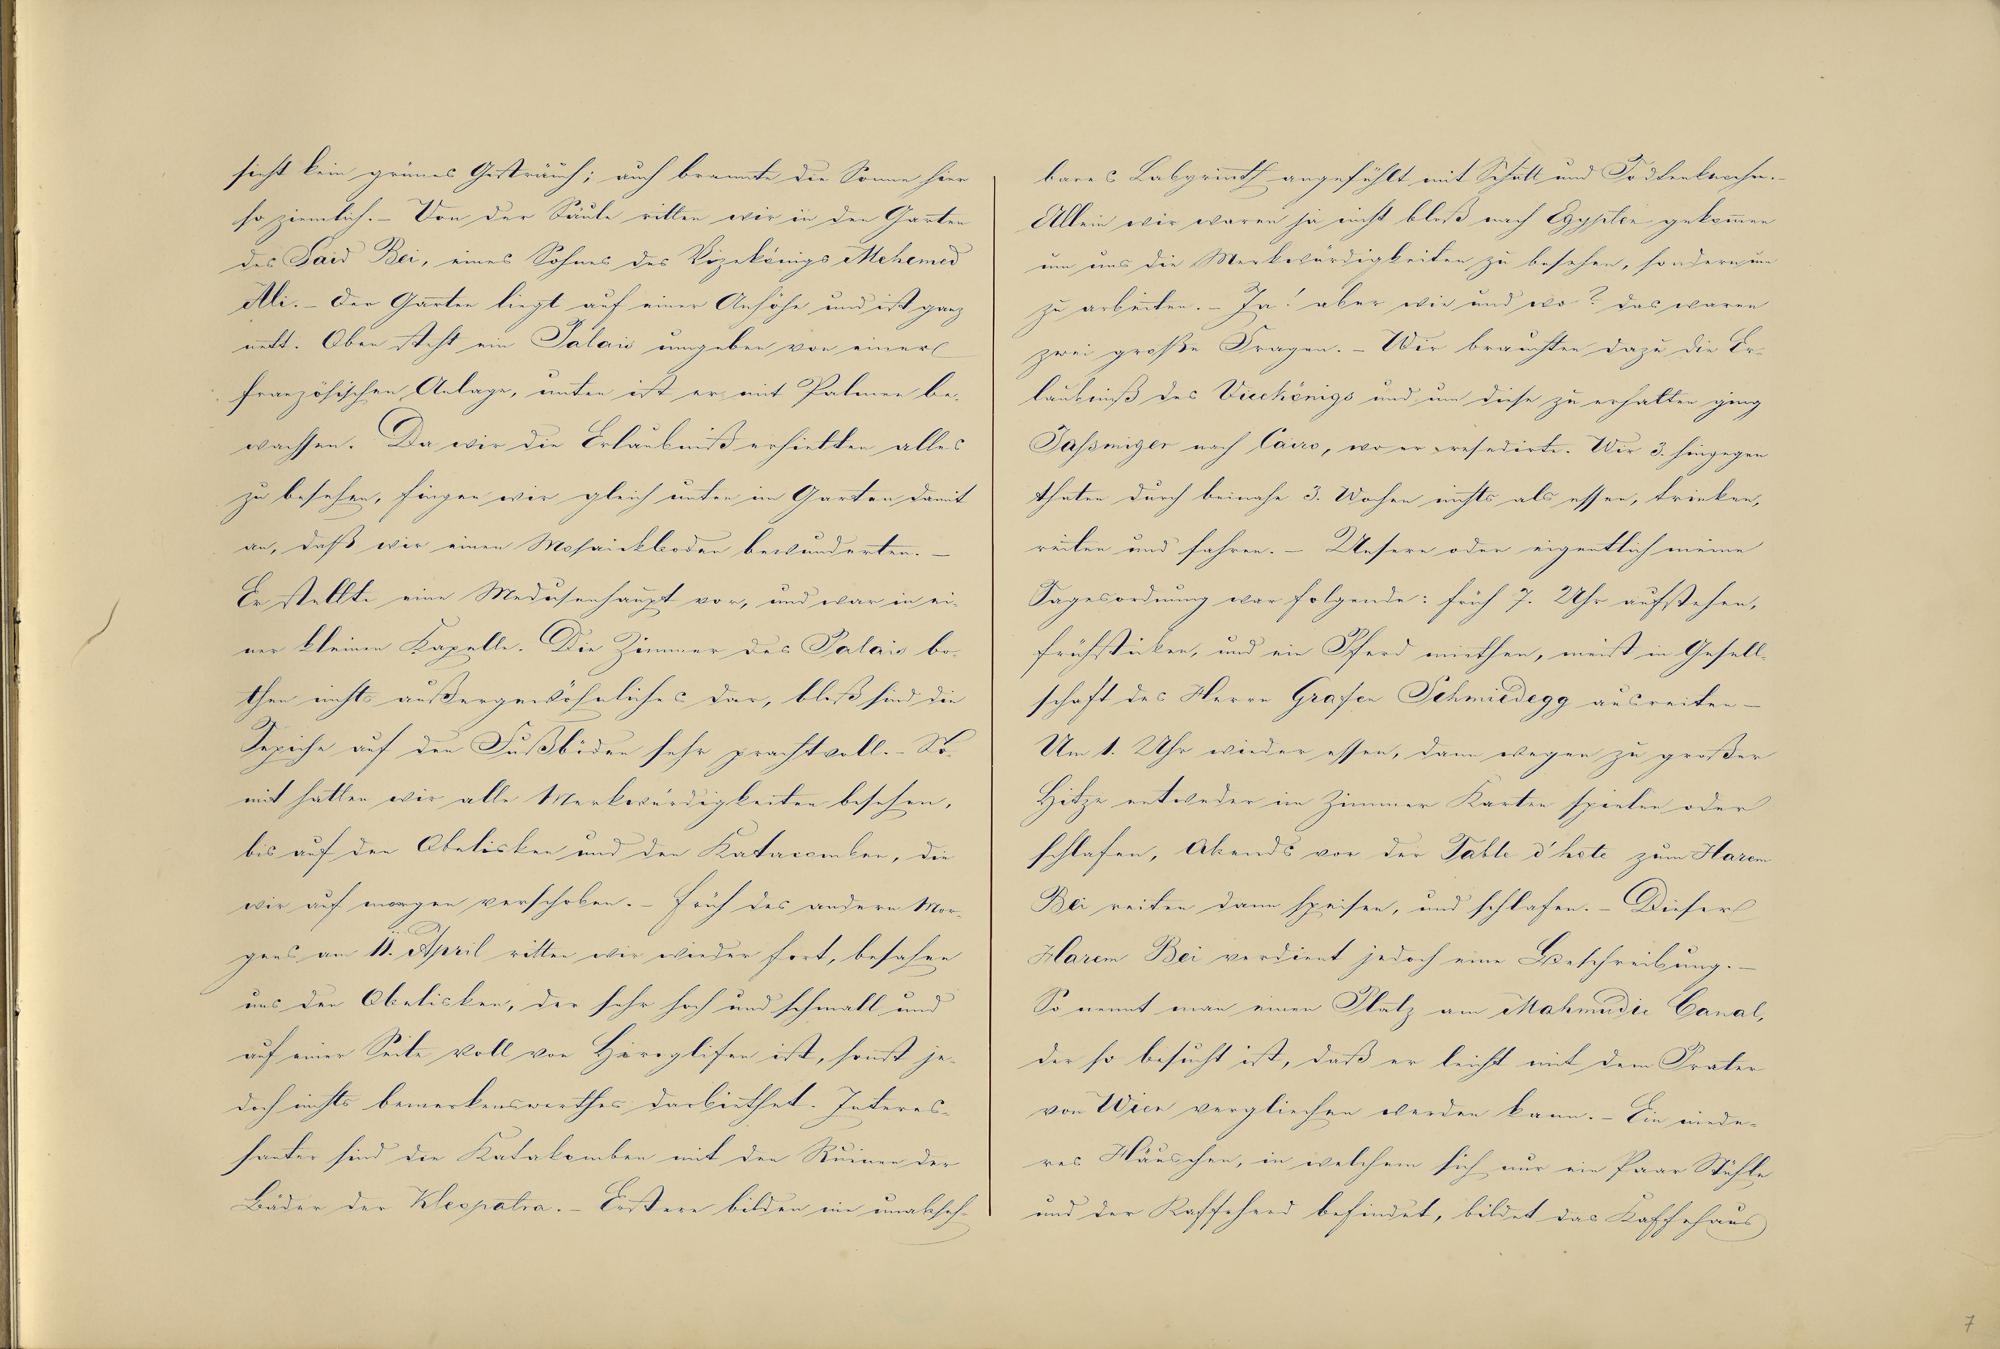 sieht kein grünes Gesträuch; auch brannte die Sonne hier
so ziemlich. – Von der Säule ritten wir in den Garten
des Said Bei, eines Sohnes des Vizekönigs Mehemed
Ali. – Der Garten liegt auf einer Anhöhe und ist ganz
nett. Oben steht ein Palais umgeben von einer
französischen Anlage, unten ist er mit Palmen be-
wachsen. Da wir die Erlaubniß erhielten alles
zu besehen, fingen wir gleich unten im Garten damit
an, daß wir einen Mosaickboden bewunderten. –
Er stellte eine Medusenhaupt vor, und war in ei-
ner kleinen Kapelle. Die Zimmer des Palais bo-
then nichts außergewöhnliches dar, bloß sind die
Tepiche auf den Fußböden sehr prachtvoll. – So-
mit hatten wir alle Merkwürdigkeiten besehen,
bis auf den Obelisken und den Kataccomben, die
wir auf morgen verschoben. – Früh des andern Mor-
gens am 11. April ritten wir wieder fort, besahen
uns den Obelisken, der sehr hoch und schmall und
auf einer Seite voll von Hiroglifen ist, sonst je-
doch nichts bemerkenswerthes darbiethet. Interes-
santer sind die Katakomben mit den Ruinen der
Bäder der Kleopatra. – Erstere bilden ein unabseh-
bares Labyrinth angefühlt mit Schutt und Todtenknochen. –
Allein wir waren ja nicht bloß nach Egypten gekommen
um uns die Merkwürdigkeiten zu besehen, sondern um
zu arbeiten. – Ja! aber wie und wo? das waren
zwei große Fragen. – Wir brauchten dazu die Er-
laubniß des Vicekönigs und um diese zu erhalten ging
nach Cairo, wo er resedirte. Wir 3. hingegen
thaten durch beinahe 3. Wochen nichts als essen, trinken,
reiten und fahren. – Unsere oder eigentlich meine
Tagesordnung war folgende: früh 7. Uhr aufstehen,
frühstücken, und ein Pferd miethen, meist in Gesell-
schaft des Herrn Grafen Schmidegg ausreiten –
Um 1. Uhr wieder essen, dann wegen zu großer
Hitze entweder im Zimmer Karten spielen oder
schlafen, Abends vor der Table d'hote zum Harem
Bei reiten dann speisen, und schlafen. – Dieser
Harem Bei verdient jedoch eine Beschreibung. –
So nennt man einen Platz am Mahmudie Canal,
der so besucht ist, daß er leicht mit dem Prater
von Wien verglichen werden kann. – Ein niede-
res Häuschen, in welchem sich nur ein Paar Stühle
und der Kaffeherd befindet, bildet das Kaffehaus
7